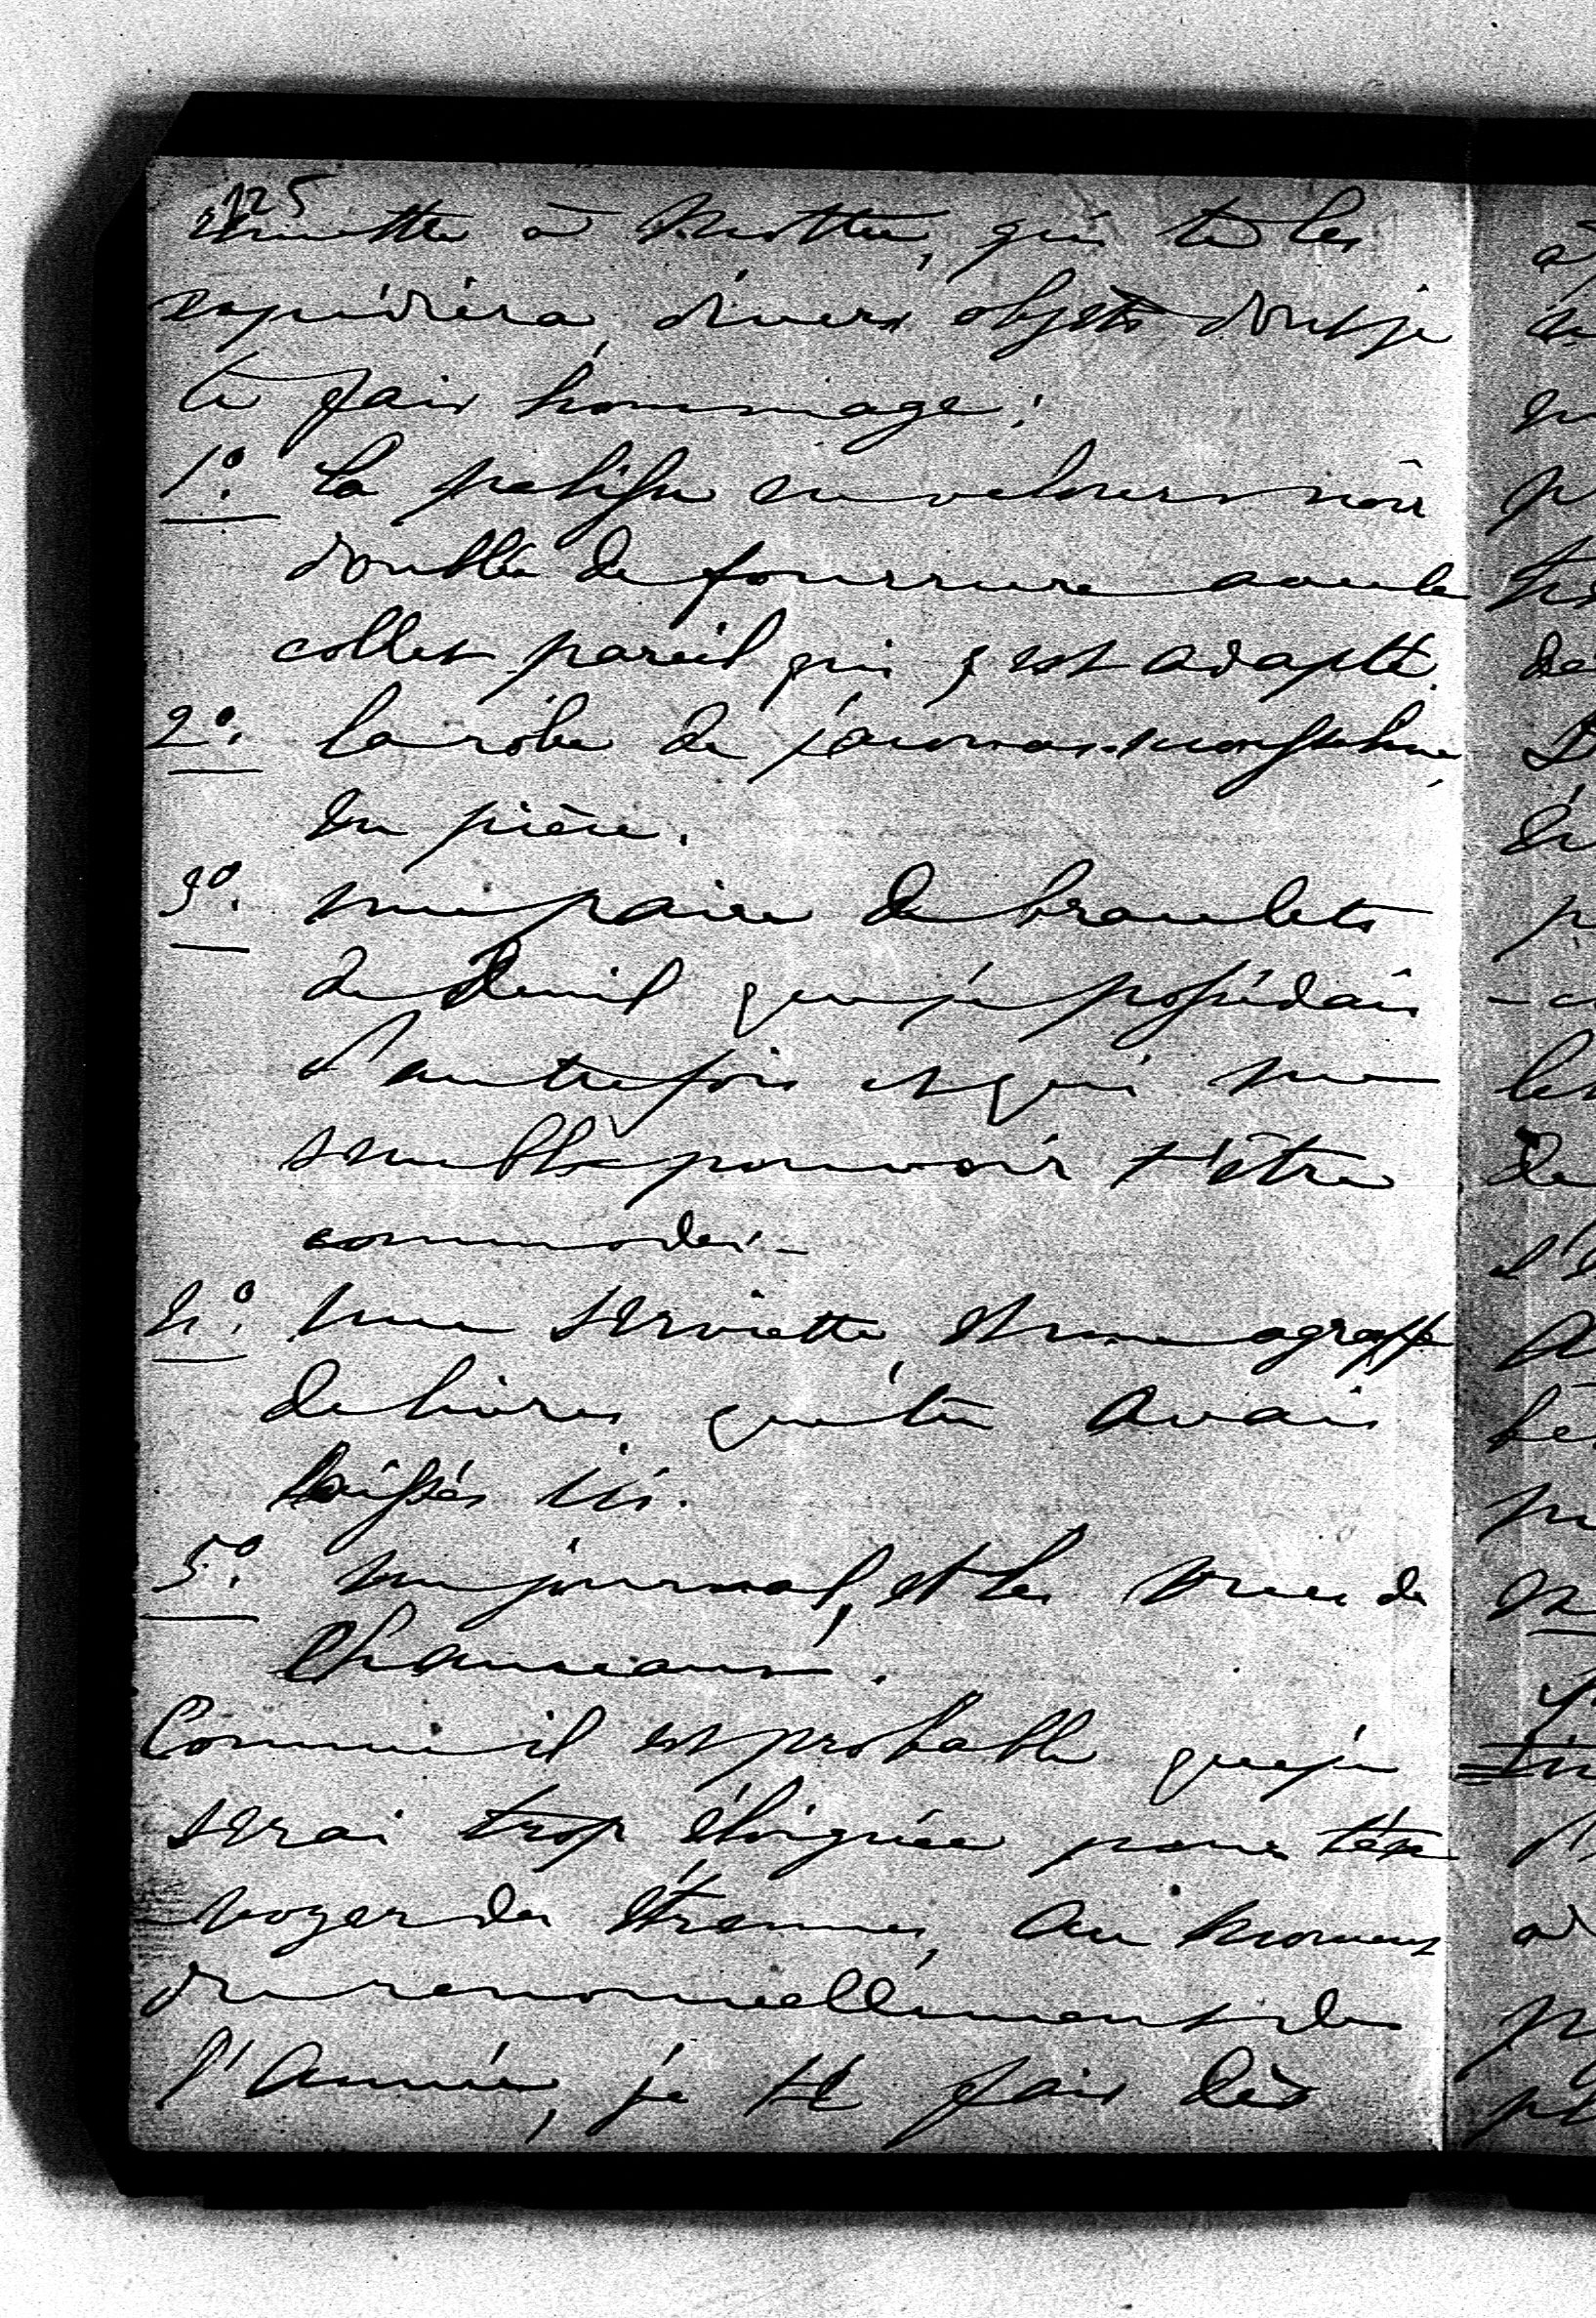 125
remettre à Mottu, qui te les
expédiera, divers objets dont je
te fais hommage:
1º. La pelisse en velours noir
doublée de fourrure avec le
collet pareil qui y est adapté.
2º. la robe de jaconas-mousseline,
en pièce.
3º. une paire de bracelets
de deuil que je possédais
d'autrefois et qui me
semble pouvoir t'être
commodes.-
4º. une serviette, et une agraffe
de livres que tu avais
laissés ici.
5º. un journal, et les vues de
Chanceaux.
Comme il est probable que je
serai trop éloignée pour t'en
voyer des étrennes, au moment
du renouvellement de
l'Année, je te fais dès